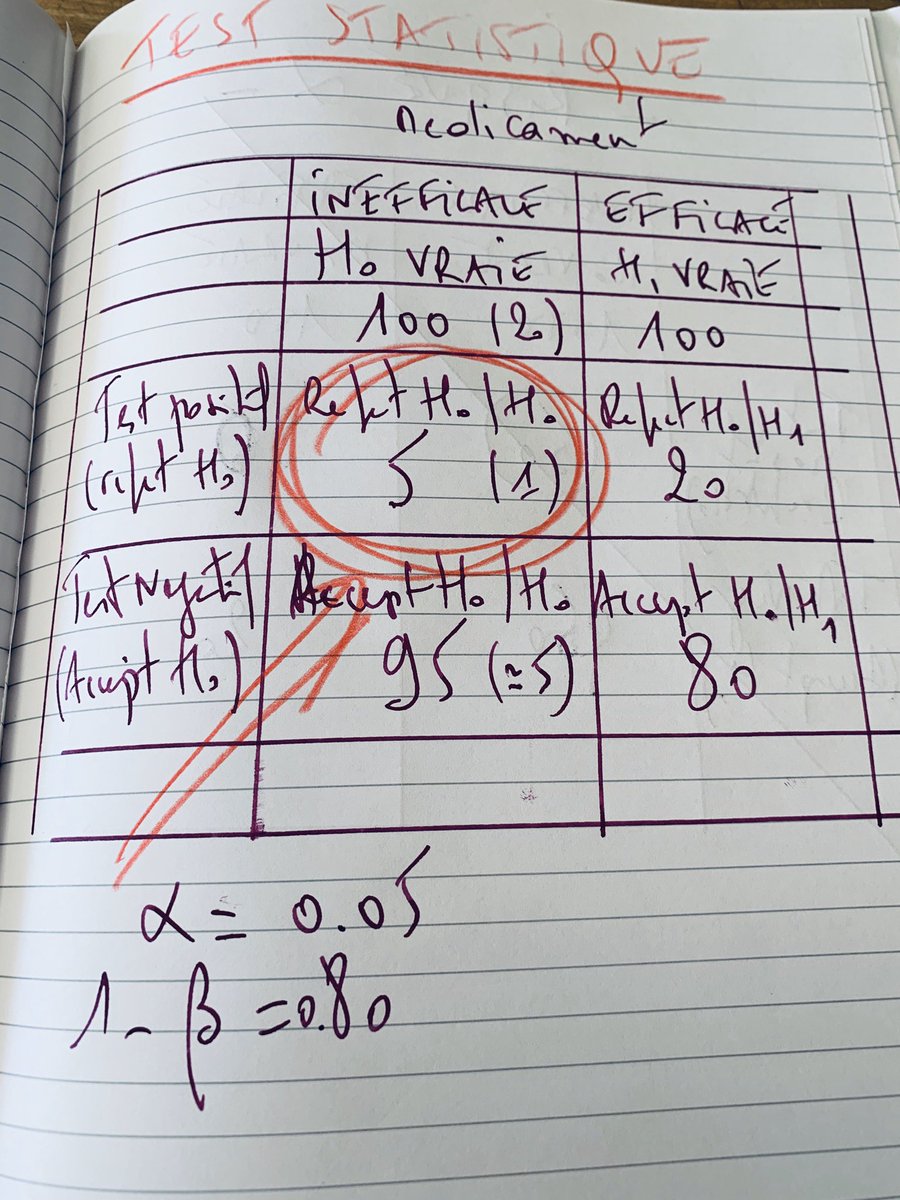 TEST STATISTIQUE
Medicament
INEFFICACE EFFICACE
H0 VRAIE H1 VRAIE
100 (2) 100
Test positif Rejet H0/H0 Rejet H0/H1
(rejet H0) 5 (1) 20
Test Negatif Accept H0/H0 Accept H0/H1
(Accept H0) 95 (≃5) 80
α = 0.05
1-β = 0.80